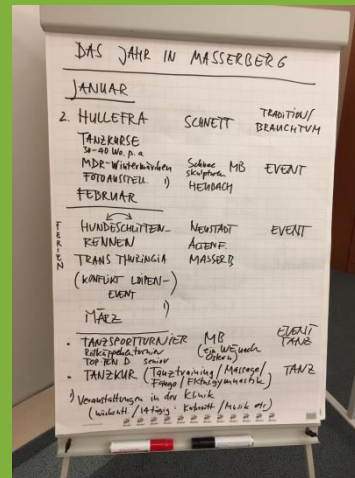 DAS JAHR IN MASSERBERG
JANUAR
2. HULLEFRA SCHNETT TRADITION/
BRAUCHTUM
TANZKURSE
30-40 Wo. p. a
MDR-Wintermärchen Schnee MB EVENT
skulpturen
FOTOAUSSTELL. 1) HEUBACH
FEBRUAR
FERIEN
HUNDESCHLITTEN- NEUSTADT EVENT
RENNEN
TRANS THÜRINGIA MASSERB
(KONFLIKT LOIPEN-)
EVENT
MÄRZ 1)
• TANZSPORTTURNIER MB EVENT
(ein WE nach TANZ
Ostern)
TOP TEN D senior
• TANZKUR (Tanztraining/Massage/ TANZ
Fango/EKGgymnastik)
1) Veranstaltungen in der Klinik
(wöchentl./14tägig: Kabarett/Musik etc)